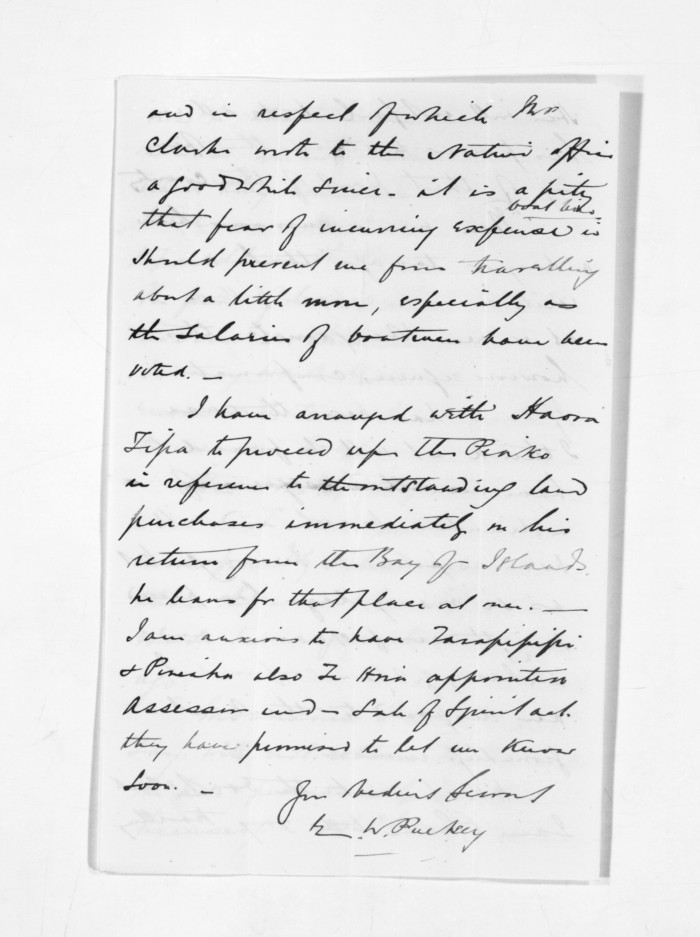 and in respect of which Mr
Clarke wrote to the Native Office
a good while since - it is a pity
that fear of incurring expense in boat hire
should prevent me from travelling
about a little more, especially as
the salaries of boatmen have been
voted. -
I have arranged with Haora
Tipa to proceed up the Piako
in reference to the outstanding land
purchases immediately on his
return from the Bay of Islands.
he leaves for that place at once. -
I am anxious to have Tarapipipi
& also Te Hira appointed
Assessor und - Sale of Spirit act.
they have promised to let me know
soon. -
Your Obedient Servant
E. W. Puckey